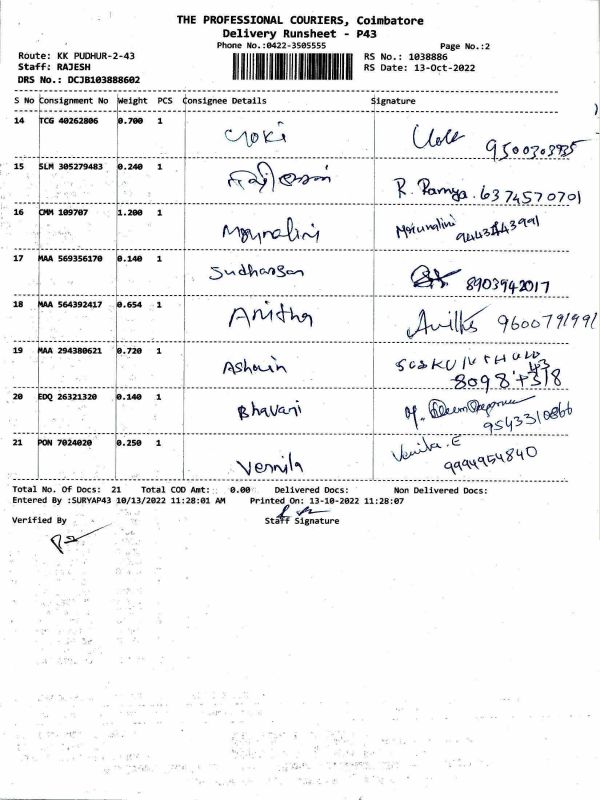 THE PROFESSIONAL COURIERS, Coimbatore
Delivery Runsheet - P43
Phone No.:0422-3505555
Page No.:2
Route: KK PUDHUR-2-43
RS No.: 1038886
Staff: RAJESH
RS Date: 13-Oct-2022
DRS No.: DCJB103888602
S No Consignment No Weight PCS Consignee Details Signature
14 TCG 40262806 0.700 1
9500303935
15 SLM 305279483 0.240 1
R. Ramya. 6374570701
16 CMM 109707 1.200 1 Moynalini Mrunalini
17 MAA 569356170 0.140 1 Sudharsan 8903942017
18 MAA 564392417 0.654 1 Anitha 9600791991
19 MAA 294380621 0.720 1 Ashwin
20 EDQ 26321320 0.140 1 Bhavani 9543310866
21 PON 7024020 0.250 1 Vennila Vennila.E
9994954840
Total No. Of Docs: 21 Total COD Amt: 0.00 Delivered Docs: Non Delivered Docs:
Entered By :SURYAP43 10/13/2022 11:28:01 AM Printed On: 13-10-2022 11:28:07
Verified By Staff Signature